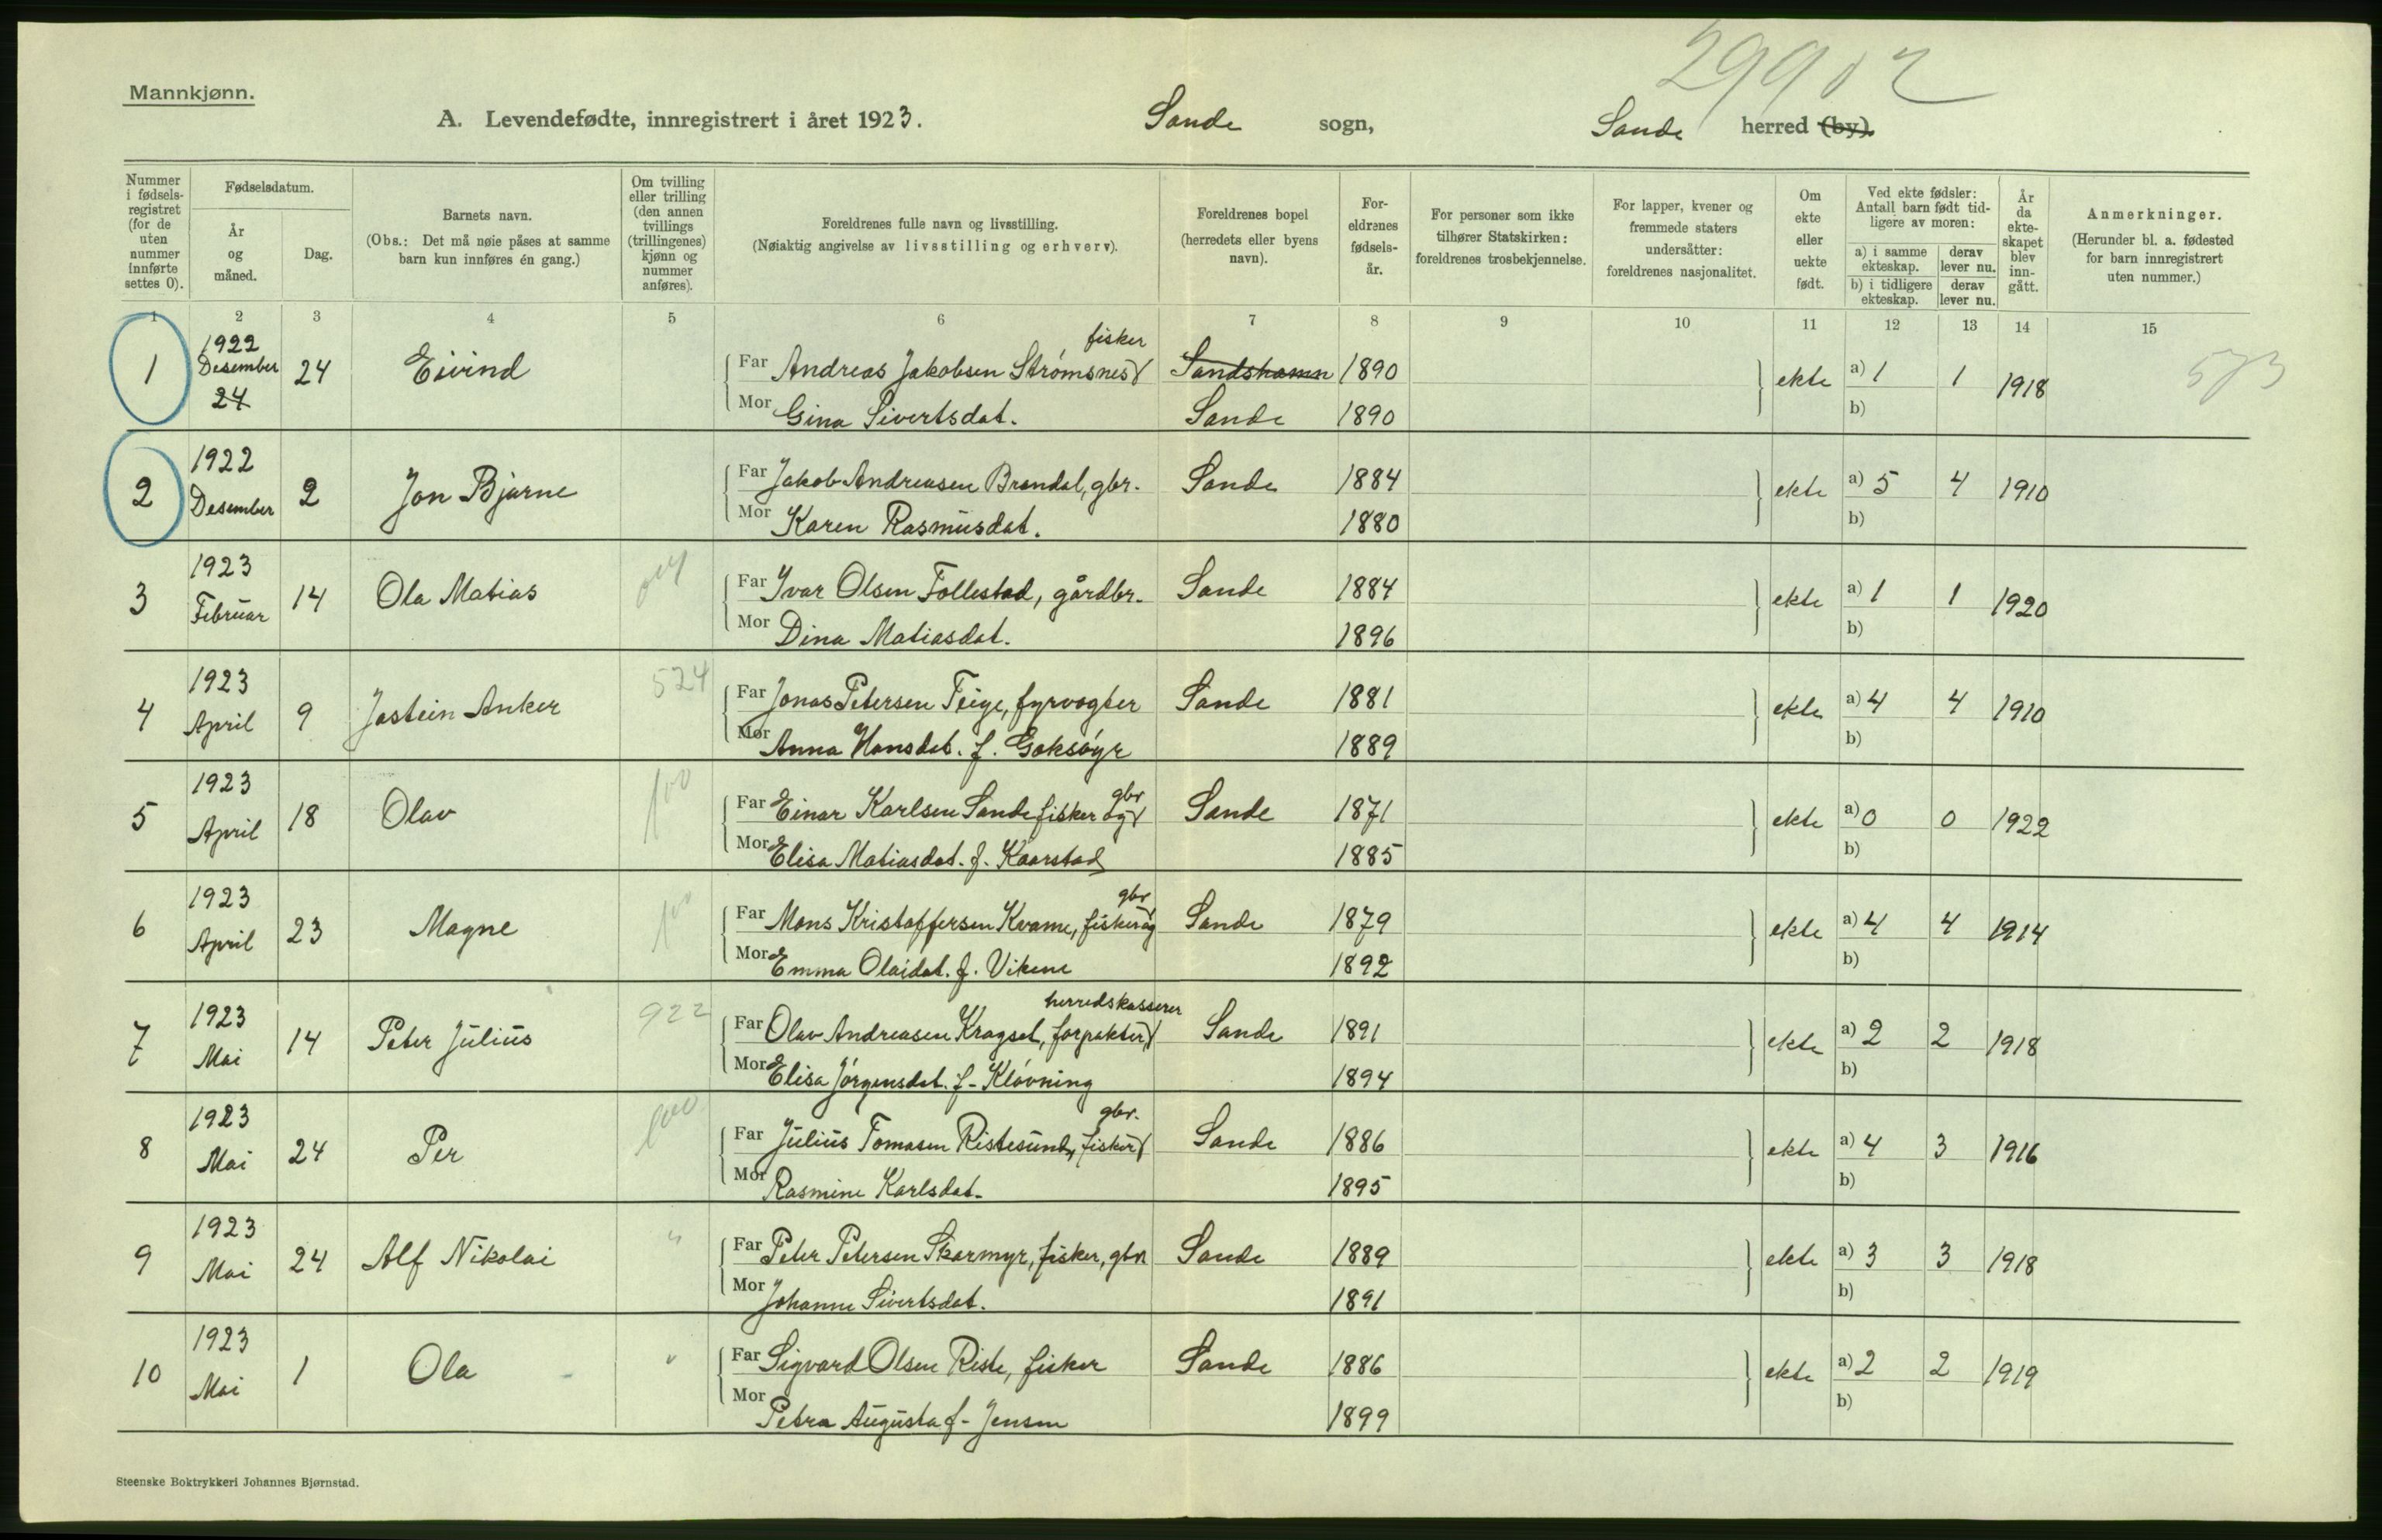 29902
Mannkjønn.
A. Levendefødte, innregistrert i året 1923. Sande sogn, Sande herred (by).
Nummer i fødsels-registret (for de uten nummer innførte settes 0).
Fødselsdatum.
År og måned.
Dag.
Barnets navn.
(Obs.: Det må nøie påses at samme barn kun innføres én gang.)
Om tvilling eller trilling (den annen tvillings (trillingenes) kjønn og nummer anføres).
Foreldrenes fulle navn og livsstilling.
(Nøiaktig angivelse av livsstilling og erhverv).
Foreldrenes bopel (herredets eller byens navn).
For-eldrenes fødsels-år.
For personer som ikke tilhører Statskirken: foreldrenes trosbekjennelse.
For lapper, kvener og fremmede staters undersåtter: foreldrenes nasjonalitet.
Om ekte eller uekte født.
Ved ekte fødsler: Antall barn født tid-ligere av moren:
a) i samme ekteskap.
derav lever nu.
b) i tidligere ekteskap.
derav lever nu.
År da ekte-skapet blev inn-gått.
Anmerkninger.
(Herunder bl. a. fødested for barn innregistrert uten nummer.)
1 2 3 4 5 6 7 8 9 10 11 12 13 14 15
1 1922 Desember 24 24 Eivind
Far Andreas Jakobsen Strømsnes fisker Sandshamn 1890 ekte a) 1 1 1918 573
Mor Gina Sivertsdat. Sande 1890 b)
2 1922 Desember 2 Jon Bjarne
Far Jakob Andreasen Brandal, gbr. Sande 1884 ekte a) 5 4 1910
Mor Karen Rasmusdat. 1880 b)
3 1923 Februar 14 Ola Matias
Far Ivar Olsen Follestad, gårdbr. Sande 1884 ekte a) 1 1 1920
Mor Dina Matiasdat. 1896 b)
4 1923 April 9 Jostein Anker 524
Far Jonas Petersen Teige, fyrvogter Sande 1881 ekte a) 4 4 1910
Mor Anna Hansdat. f. Goksøyr 1889 b)
5 1923 April 18 Olav 100
Far Einar Karlsen Sande fisker og gbr Sande 1871 ekte a) 0 0 1922
Mor Elisa Matiasdat. f. Kaarstad 1885 b)
6 1923 April 23 Magne 100
Far Mons Kristoffersen Kvame, fisker og gbr Sande 1879 ekte a) 4 4 1914
Mor Emma Olaidat. f. Vikene 1892 b)
7 1923 Mai 14 Peter Julius 922
Far Olav Andreasen Kragset, forpakter, herredskasserer Sande 1891 ekte a) 2 2 1918
Mor Elisa Jørgensdat. f. Kløvning 1894 b)
8 1923 Mai 24 Per
Far Julius Tomasen Ristesund, fisker gbr. Sande 1886 ekte a) 4 3 1916
Mor Rasmine Karlsdat. 1895 b)
9 1923 Mai 24 Alf Nikolai "
Far Peter Petersen Skarmyr, fisker, gbr Sande 1889 ekte a) 3 3 1918
Mor Johanne Sivertsdat. 1891 b)
10 1923 Mai 1 Ola "
Far Sigvard Olsen Riste, fisker Sande 1886 ekte a) 2 2 1919
Mor Petra Augusta f. Jensen 1899 b)
Steenske Boktrykkeri Johannes Bjørnstad.